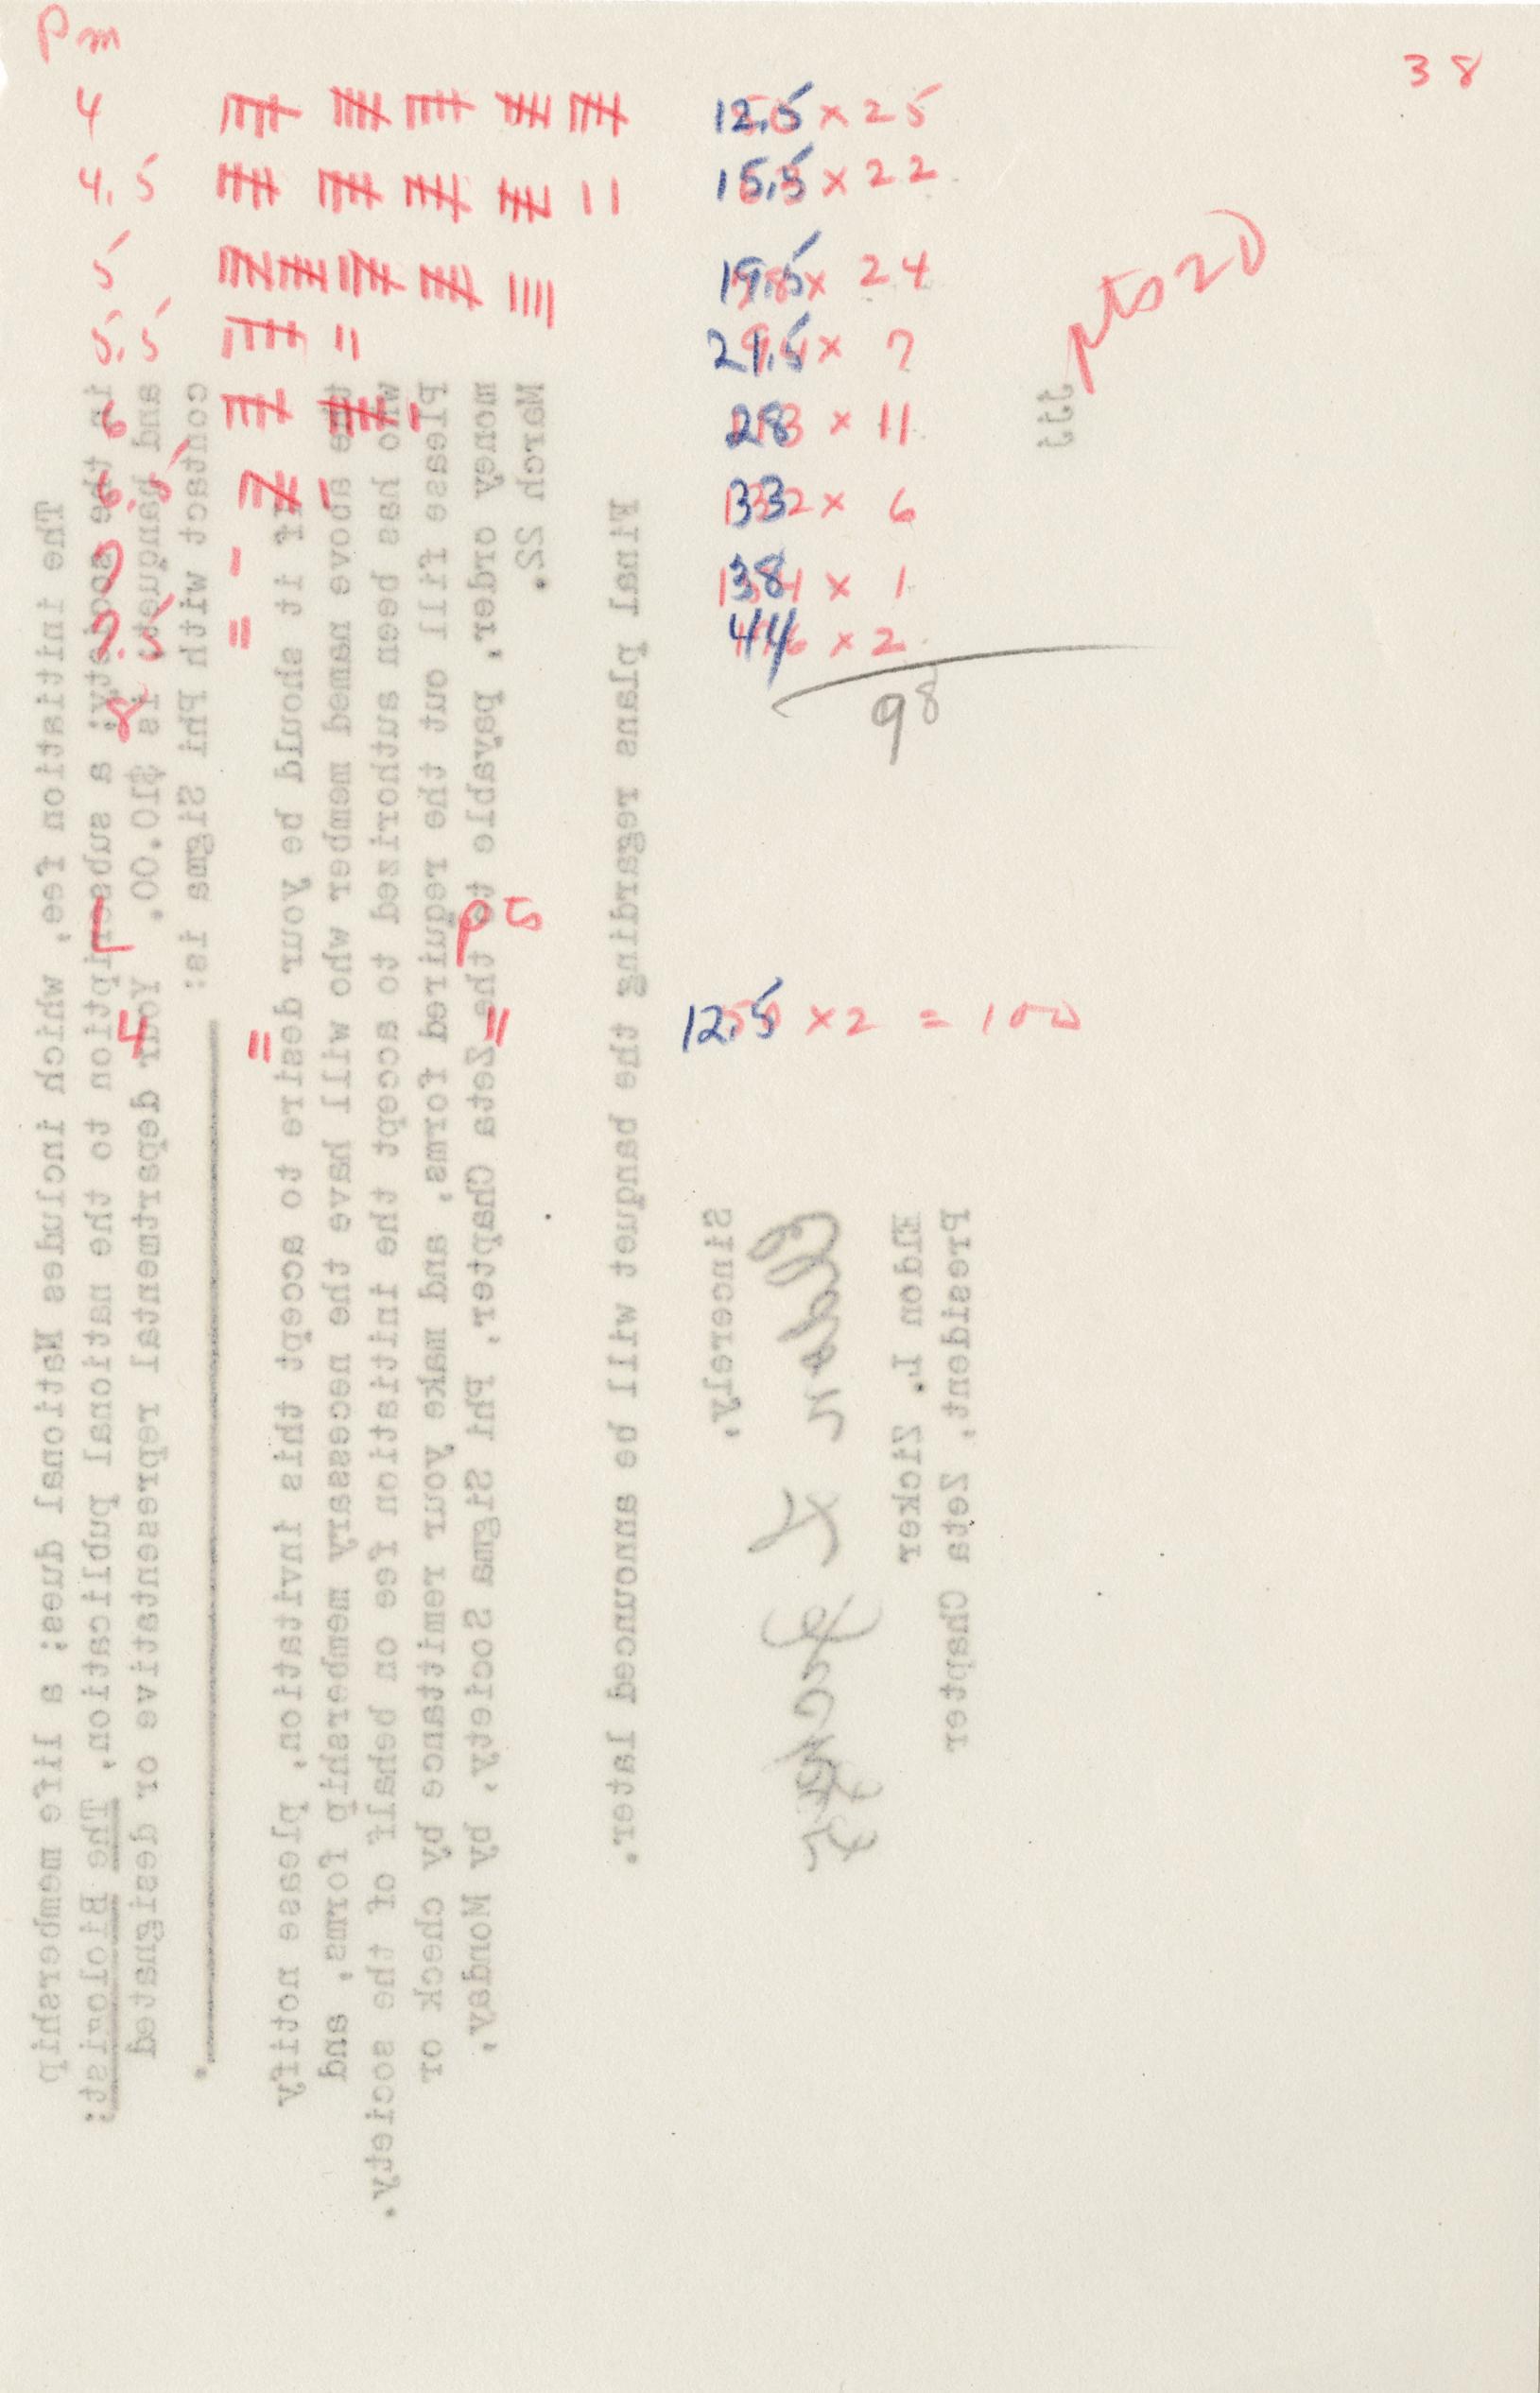 Pm
38
4 12.5 × 25
4.5 15.5 × 22
5 19.5 × 24
5.5 21.5 × 7
6 28 × 11
6.5 33 × 6
7 38 × 1
7.5 44 × 2
8
98
pts 20
P5
4 12.5 × 2 = 100
The initiation fee, which includes National dues; a life membership
in the society; a subscription to the national publication, The Biologist;
and banquet, is $10.00. Your departmental representative or designated
contact with Phi Sigma is:
If it should be your desire to accept this invitation, please notify
the above named member who will have the necessary membership forms, and
who has been authorized to accept the initiation fee on behalf of the society.
Please fill out the required forms, and make your remittance by check or
money order, payable to the Zeta Chapter, Phi Sigma Society, by Monday,
March 22.
Final plans regarding the banquet will be announced later.
Sincerely,
Eldon L. Zicker
President, Zeta Chapter
jjj